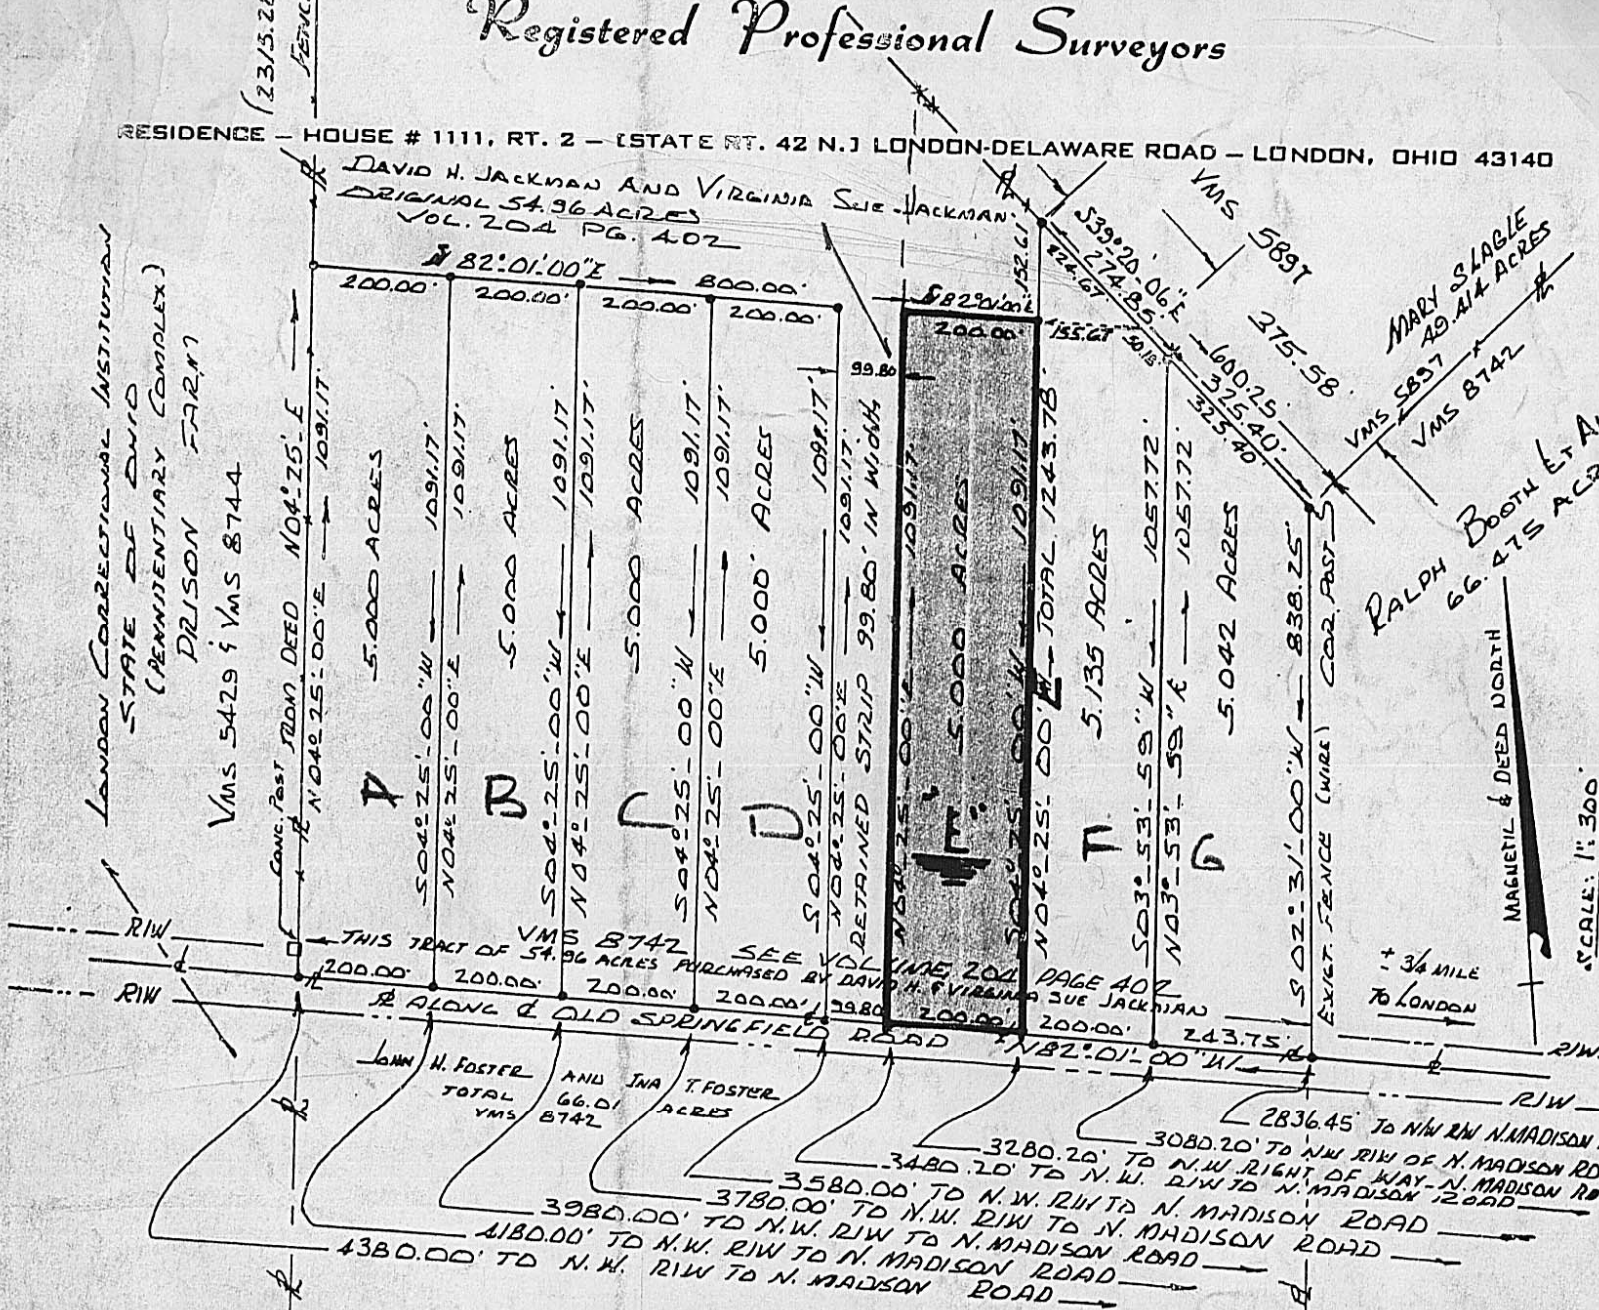 Registered Professional Surveyors
RESIDENCE – HOUSE # 1111, RT. 2 – (STATE RT. 42 N.) LONDON-DELAWARE ROAD – LONDON, OHIO 43140
(2315.2
FENC
DAVID H. JACKMAN AND VIRGINIA SUE JACKMAN.
ORIGINAL 54.96 ACRES
VOL. 204 PG. 402
S 82°-01'-00"E 800.00'
200.00'
200.00'
200.00'
200.00'
S 82°01'00"E
200.00'
152.61
155.67
99.80
S39°-20'-06"E
274.85'
224.67
50.18
600.25'
325.40'
323.40'
375.58'
VMS 5897
MARY SLAGLE
49.414 ACRES
VMS 5897
VMS 8742
RALPH BOOTH ET AL
66.475 ACR
LONDON CORRECTIONAL INSTITUTION
STATE OF OHIO
(PENNITENTIARY COMPLEX)
PRISON FARM
VMS 5429 & VMS 8744
CONC. POST FROM DEED N04°-25'-E
N04°-25'-00"E 1091.17'
5.000 ACRES
A
S04°-25'-00"W 1091.17'
N04°-25'-00"E 1091.17'
5.000 ACRES
B
S04°-25'-00"W 1091.17'
N04°-25'-00"E 1091.17'
5.000 ACRES
C
S04°-25'-00"W 1091.17'
N04°-25'-00"E 1091.17'
5.000' ACRES
D
S04°-25'-00"W 1091.17'
N04°-25'-00"E 1091.17'
RETAINED STRIP 99.80' IN WIDTH
N04°-25'-00"E 1091.17'
5.000 ACRES
"E"
S04°-25'-00"W 1091.17'
N04°-25'-00"E TOTAL 1243.78'
5.135 ACRES
F
S03°-53'-59"W 1057.72'
N03°-53'-59"E 1057.72'
5.042 ACRES
G
S02°-31'-00"W 838.25'
EXIST. FENCE (WIRE) COR. POST
MAGNETIC & DEED NORTH
SCALE: 1": 300'
R/W
R/W
VMS 8742 SEE VOLUME 204 PAGE 402
THIS TRACT OF 54.96 ACRES PURCHASED BY DAVID H. & VIRGINIA SUE JACKMAN
200.00'
200.00'
200.00'
200.00'
99.80'
200.00'
200.00'
243.75'
℄ ALONG ℄ OLD SPRINGFIELD ROAD
N82°-01'-00"W
± 3/4 MILE
TO LONDON
R/W
R/W
JOHN H. FOSTER AND INA T. FOSTER
TOTAL 66.01 ACRES
VMS 8742
2836.45' TO N/W R/W N. MADISON
3080.20' TO NW R/W OF N. MADISON RD
3280.20' TO N.W. RIGHT OF WAY - N. MADISON RD
3480.20' TO N.W. R/W TO N. MADISON ROAD
3580.00' TO N.W. R/W TO N. MADISON ROAD
3780.00' TO N.W. R/W TO N. MADISON ROAD
3980.00' TO N.W. R/W TO N. MADISON ROAD
4180.00' TO N.W. R/W TO N. MADISON ROAD
4380.00' TO N.W. R/W TO N. MADISON ROAD